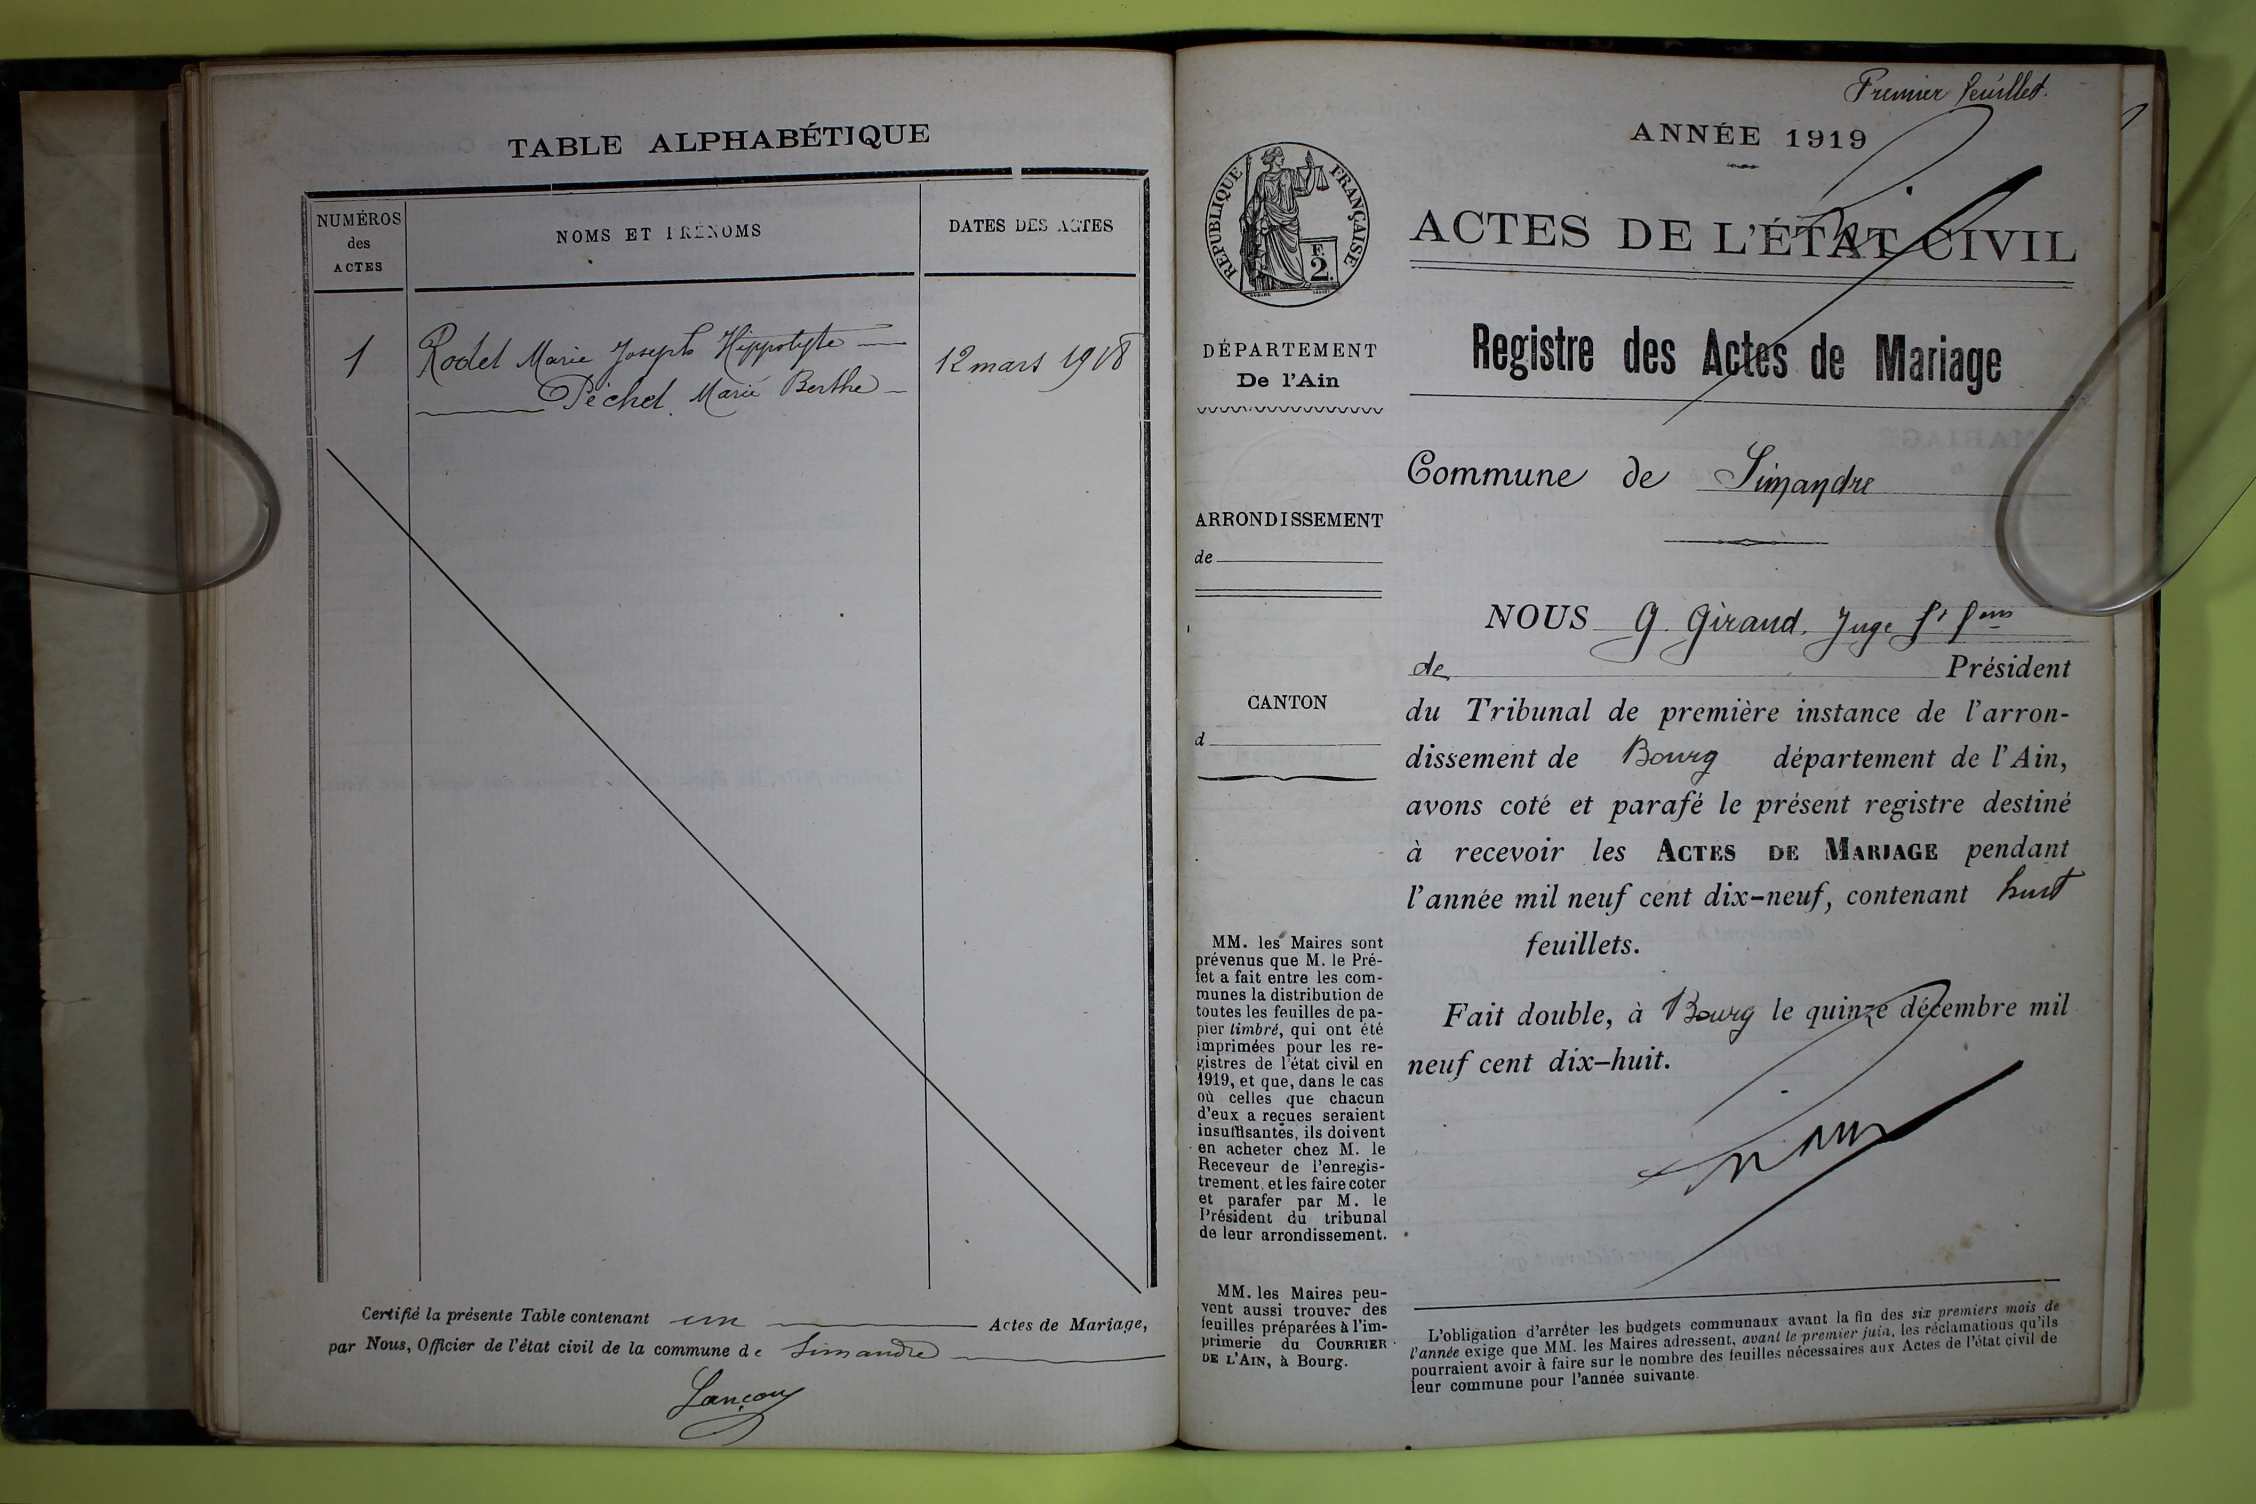 TABLE ALPHABÉTIQUE
NUMÉROS
des
ACTES
NOMS ET PRÉNOMS
DATES DES ACTES
1
Rodet Marie Joseph Hippolyte
Péchet Marie Berthe
12 mars 1918
Certifié la présente Table contenant un Actes de Mariage,
par Nous, Officier de l'état civil de la commune de Simandre
Lançon
Premier feuillet.
ANNÉE 1919
RÉPUBLIQUE FRANÇAISE
2 F.
ACTES DE L'ÉTAT CIVIL
Registre des Actes de Mariage
DÉPARTEMENT
De l'Ain
Commune de Simandre
ARRONDISSEMENT
de
CANTON
d
NOUS G. Giraud. Juge
de Président
du Tribunal de première instance de l'arron-
dissement de Bourg département de l'Ain,
avons coté et parafé le présent registre destiné
à recevoir les ACTES DE MARIAGE pendant
l'année mil neuf cent dix-neuf, contenant huit
feuillets.
Fait double, à Bourg le quinze décembre mil
neuf cent dix-huit.
MM. les Maires sont
prévenus que M. le Pré-
fet a fait entre les com-
munes la distribution de
toutes les feuilles de pa-
pier timbré, qui ont été
imprimées pour les re-
gistres de l'état civil en
1919, et que, dans le cas
où celles que chacun
d'eux a reçues seraient
insuffisantes, ils doivent
en acheter chez M. le
Receveur de l'enregis-
trement, et les faire coter
et parafer par M. le
Président du tribunal
de leur arrondissement.
MM. les Maires peu-
vent aussi trouver des
feuilles préparées à l'im-
primerie du COURRIER
DE L'AIN, à Bourg.
L'obligation d'arrêter les budgets communaux avant la fin des six premiers mois de
l'année exige que MM. les Maires adressent, avant le premier juin, les réclamations qu'ils
pourraient avoir à faire sur le nombre des feuilles nécessaires aux Actes de l'état civil de
leur commune pour l'année suivante.